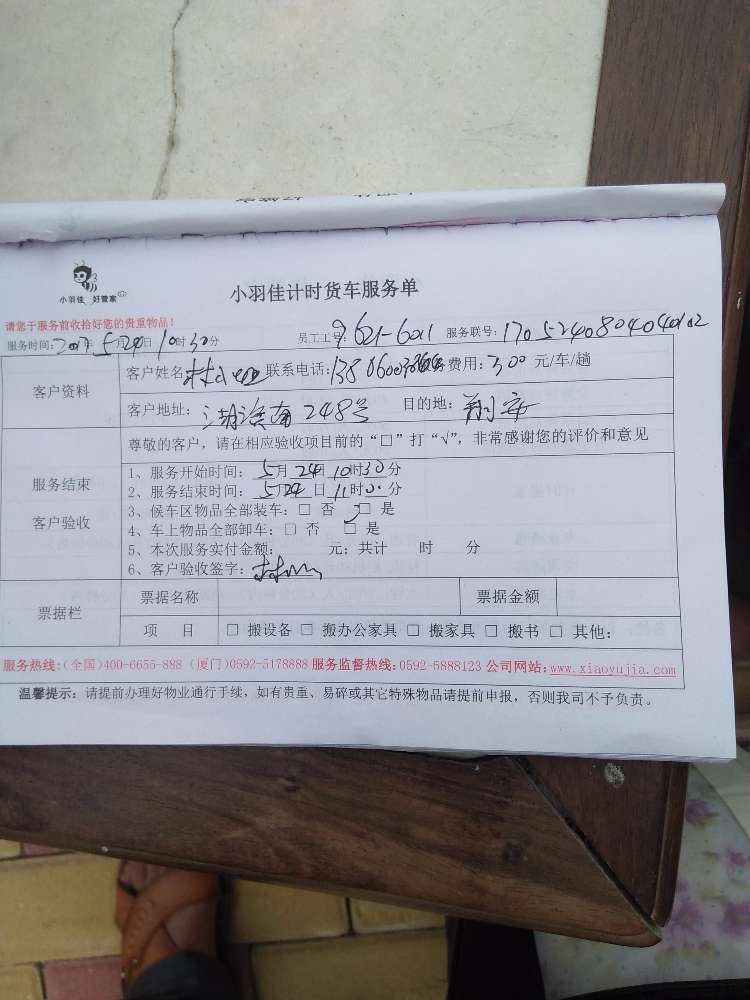 小羽佳 好管家
小羽佳计时货车服务单
请您于服务前收拾好您的贵重物品!
服务时间: 2017年 5月 24日 10时 30分 员工工号: 9621-6011 服务联号: 1705240804040102
客户资料
客户姓名: 林 联系电话: 费用: 300 元/车/趟
客户地址: 湖滨南248号 目的地: 翔安
服务结束
客户验收
尊敬的客户,请在相应验收项目前的“□”打“√”,非常感谢您的评价和意见
1、服务开始时间: 5月 24日 10时30分
2、服务结束时间: 5月24日 11时00分
3、候车区物品全部装车:□ 否 □ 是
4、车上物品全部卸车:□ 否 □ 是
5、本次服务实付金额: 元; 共计 时 分
6、客户验收签字:
票据栏
票据名称 票据金额
项 目 □ 搬设备 □ 搬办公家具 □ 搬家具 □ 搬书 □ 其他:
服务热线:(全国)400-6655-888 (厦门)0592-5178888 服务监督热线:0592-5888123 公司网站:www.xiaoyujia.com
温馨提示:请提前办理好物业通行手续,如有贵重、易碎或其它特殊物品请提前申报,否则我司不予负责。